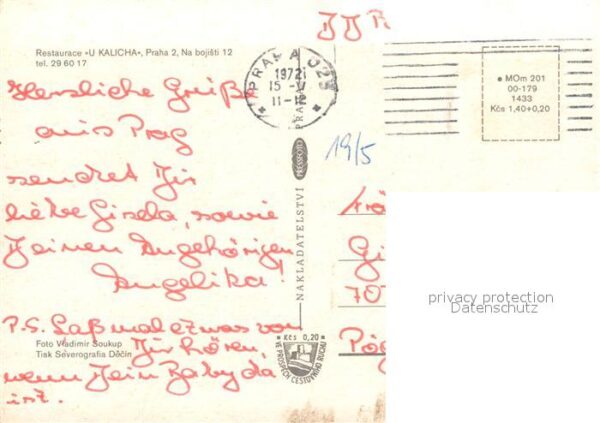 Restaurace »U KALICHA«, Praha 2, Na bojišti 12
tel. 29 60 17
Herzliche Grüße
aus Prag
sendet Dir
liebe Gisela, sowie
Deinen Angehörigen
Angelika!
P.S. Laß mal etwas von
Dir hören,
wenn Dein Baby da
ist.
Foto Vladimír Soukup
Tisk Severografia Děčín
PRAHA 025
1972
15
11-12
NAKLADATELSTVÍ
PRESSFOTO
PRAHA
Kčs 0,20
VE PROSPĚCH CESTOVNÍHO RUCHU
DDR
19/5
MOm 201
00-179
1433
Kčs 1,40+0,20
Gi
70
privacy protection
Datenschutz